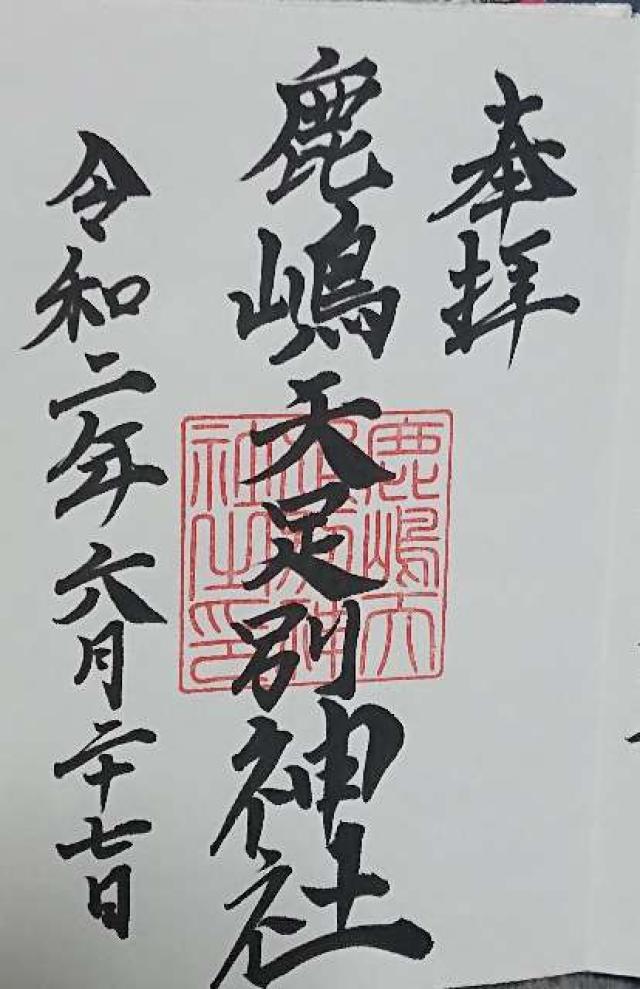 奉拝
鹿嶋天足別神社
令和二年六月二十七日
鹿嶋天
足別神
社之印